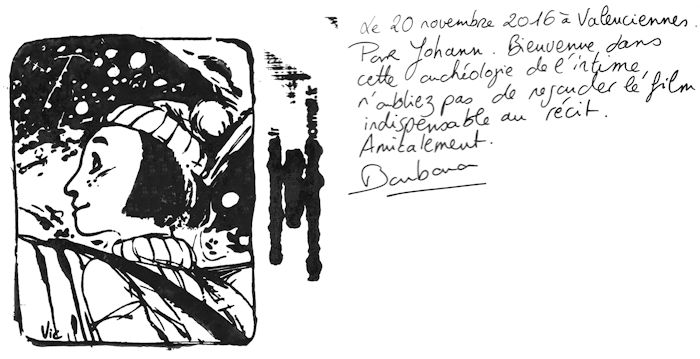 Le 20 novembre 2016 à Valenciennes.
Pour Johann. Bienvenue dans
cette archéologie de l'intime
n'oubliez pas de regarder le film
indispensable au récit.
Amicalement.
Barbara
Vic